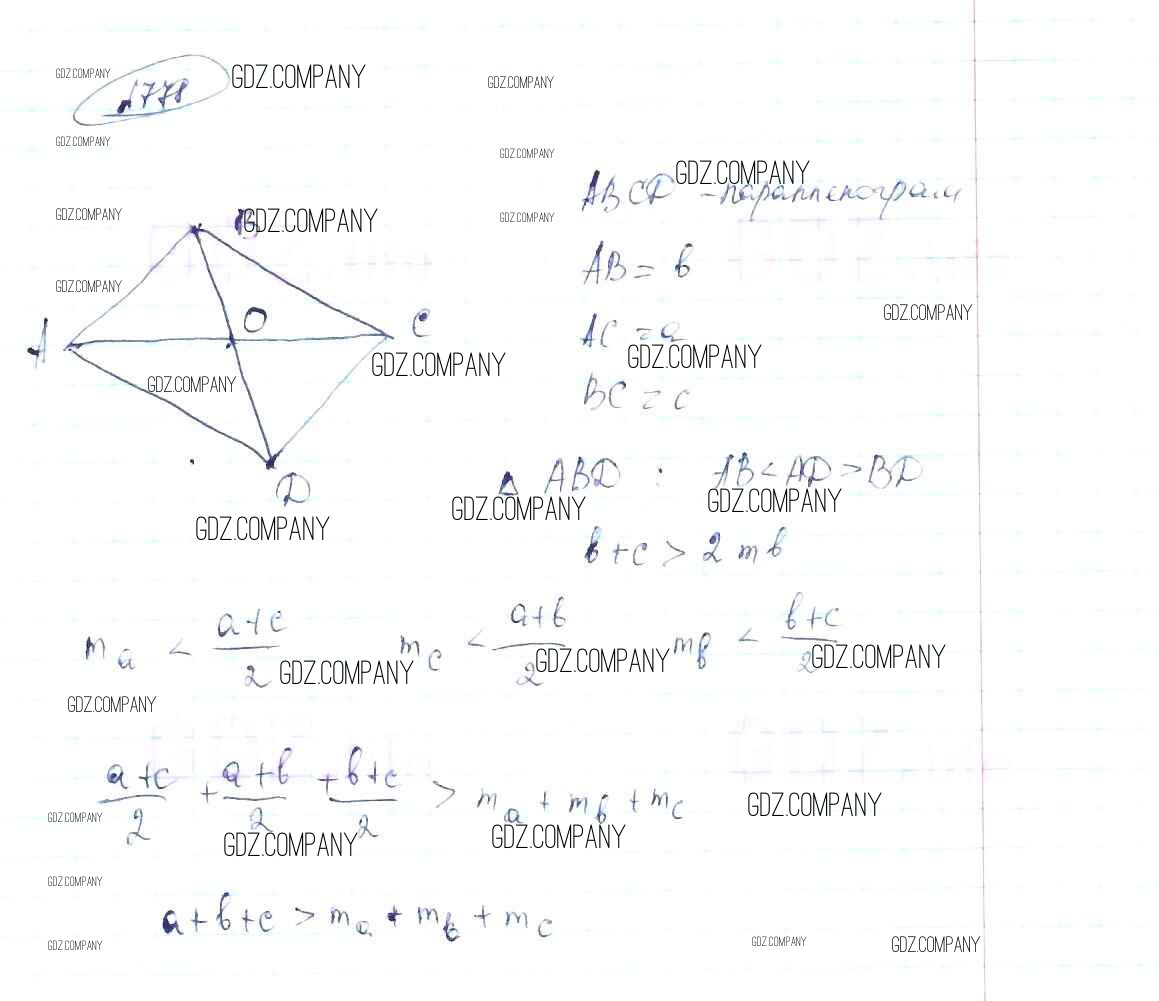 1778
GDZ.COMPANY GDZ.COMPANY GDZ.COMPANY
GDZ.COMPANY GDZ.COMPANY
ABCD - параллелограм GDZ.COMPANY
GDZ.COMPANY B GDZ.COMPANY GDZ.COMPANY
AB = b
GDZ.COMPANY GDZ.COMPANY
A O C AC = a
GDZ.COMPANY GDZ.COMPANY
GDZ.COMPANY BC = c
D Δ ABD : AB < AD > BD
GDZ.COMPANY GDZ.COMPANY GDZ.COMPANY
b + c > 2 m b
m a < a+c / 2 m c < a+b / 2 m b < b+c / 2
GDZ.COMPANY GDZ.COMPANY GDZ.COMPANY
GDZ.COMPANY
a+c / 2 + a+b / 2 + b+c / 2 > m a + m b + m c
GDZ.COMPANY GDZ.COMPANY
GDZ.COMPANY GDZ.COMPANY
GDZ.COMPANY
a + b + c > m a + m b + m c
GDZ.COMPANY GDZ.COMPANY GDZ.COMPANY